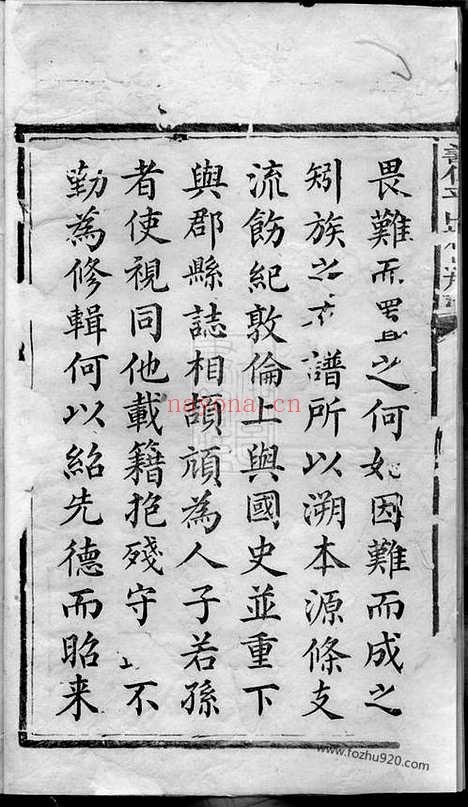 畏難而置之何如因難而成之
矧族之有譜所以溯本源條支
流飭紀敦倫上與國史並重下
與郡縣誌相頡頏為人子若孫
者使視同他載籍抱殘守 不
勤為修輯何以紹先德而昭来
nayona.cn
www.fozhu920.com